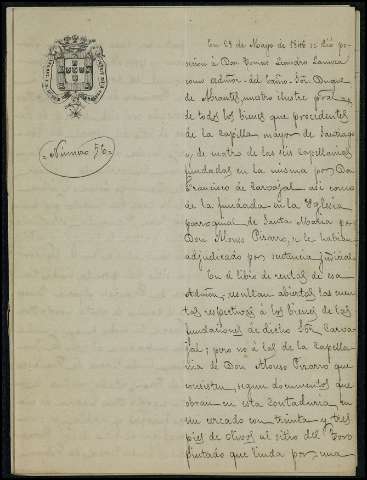 Número 56
En 29 de Mayo de 1846 se dió po-
sesion á Don Tomas Leandro Zamora
como admor. del Excmo. Sõr. Duque
de Abrantes, nuestro ilustre
de todos los bienes que procedentes
de la capilla mayor de Santiago
y de cuatro de las seis capellanias
fundadas en la misma por Don
Francisco de Carvajal así como
de la fundada en la Yglesia
parroquial de Santa Maria por
Don Alonso Pizarro, se le habian
adjudicado por sentencia judicial.
En el libro de rentas de esa
Admõn. resultan abiertas las cuen-
tas respectivas á los bienes de las
fundaciones de dicho Sõr. Carva-
jal; pero no á los de la capella-
nia de Don Alonso Pizarro que
consisten, segun documentos que
obran en esta Contaduria, en
un cercado con treinta y tres
pies de olivos al sitro del Toro
pintado que linda por una